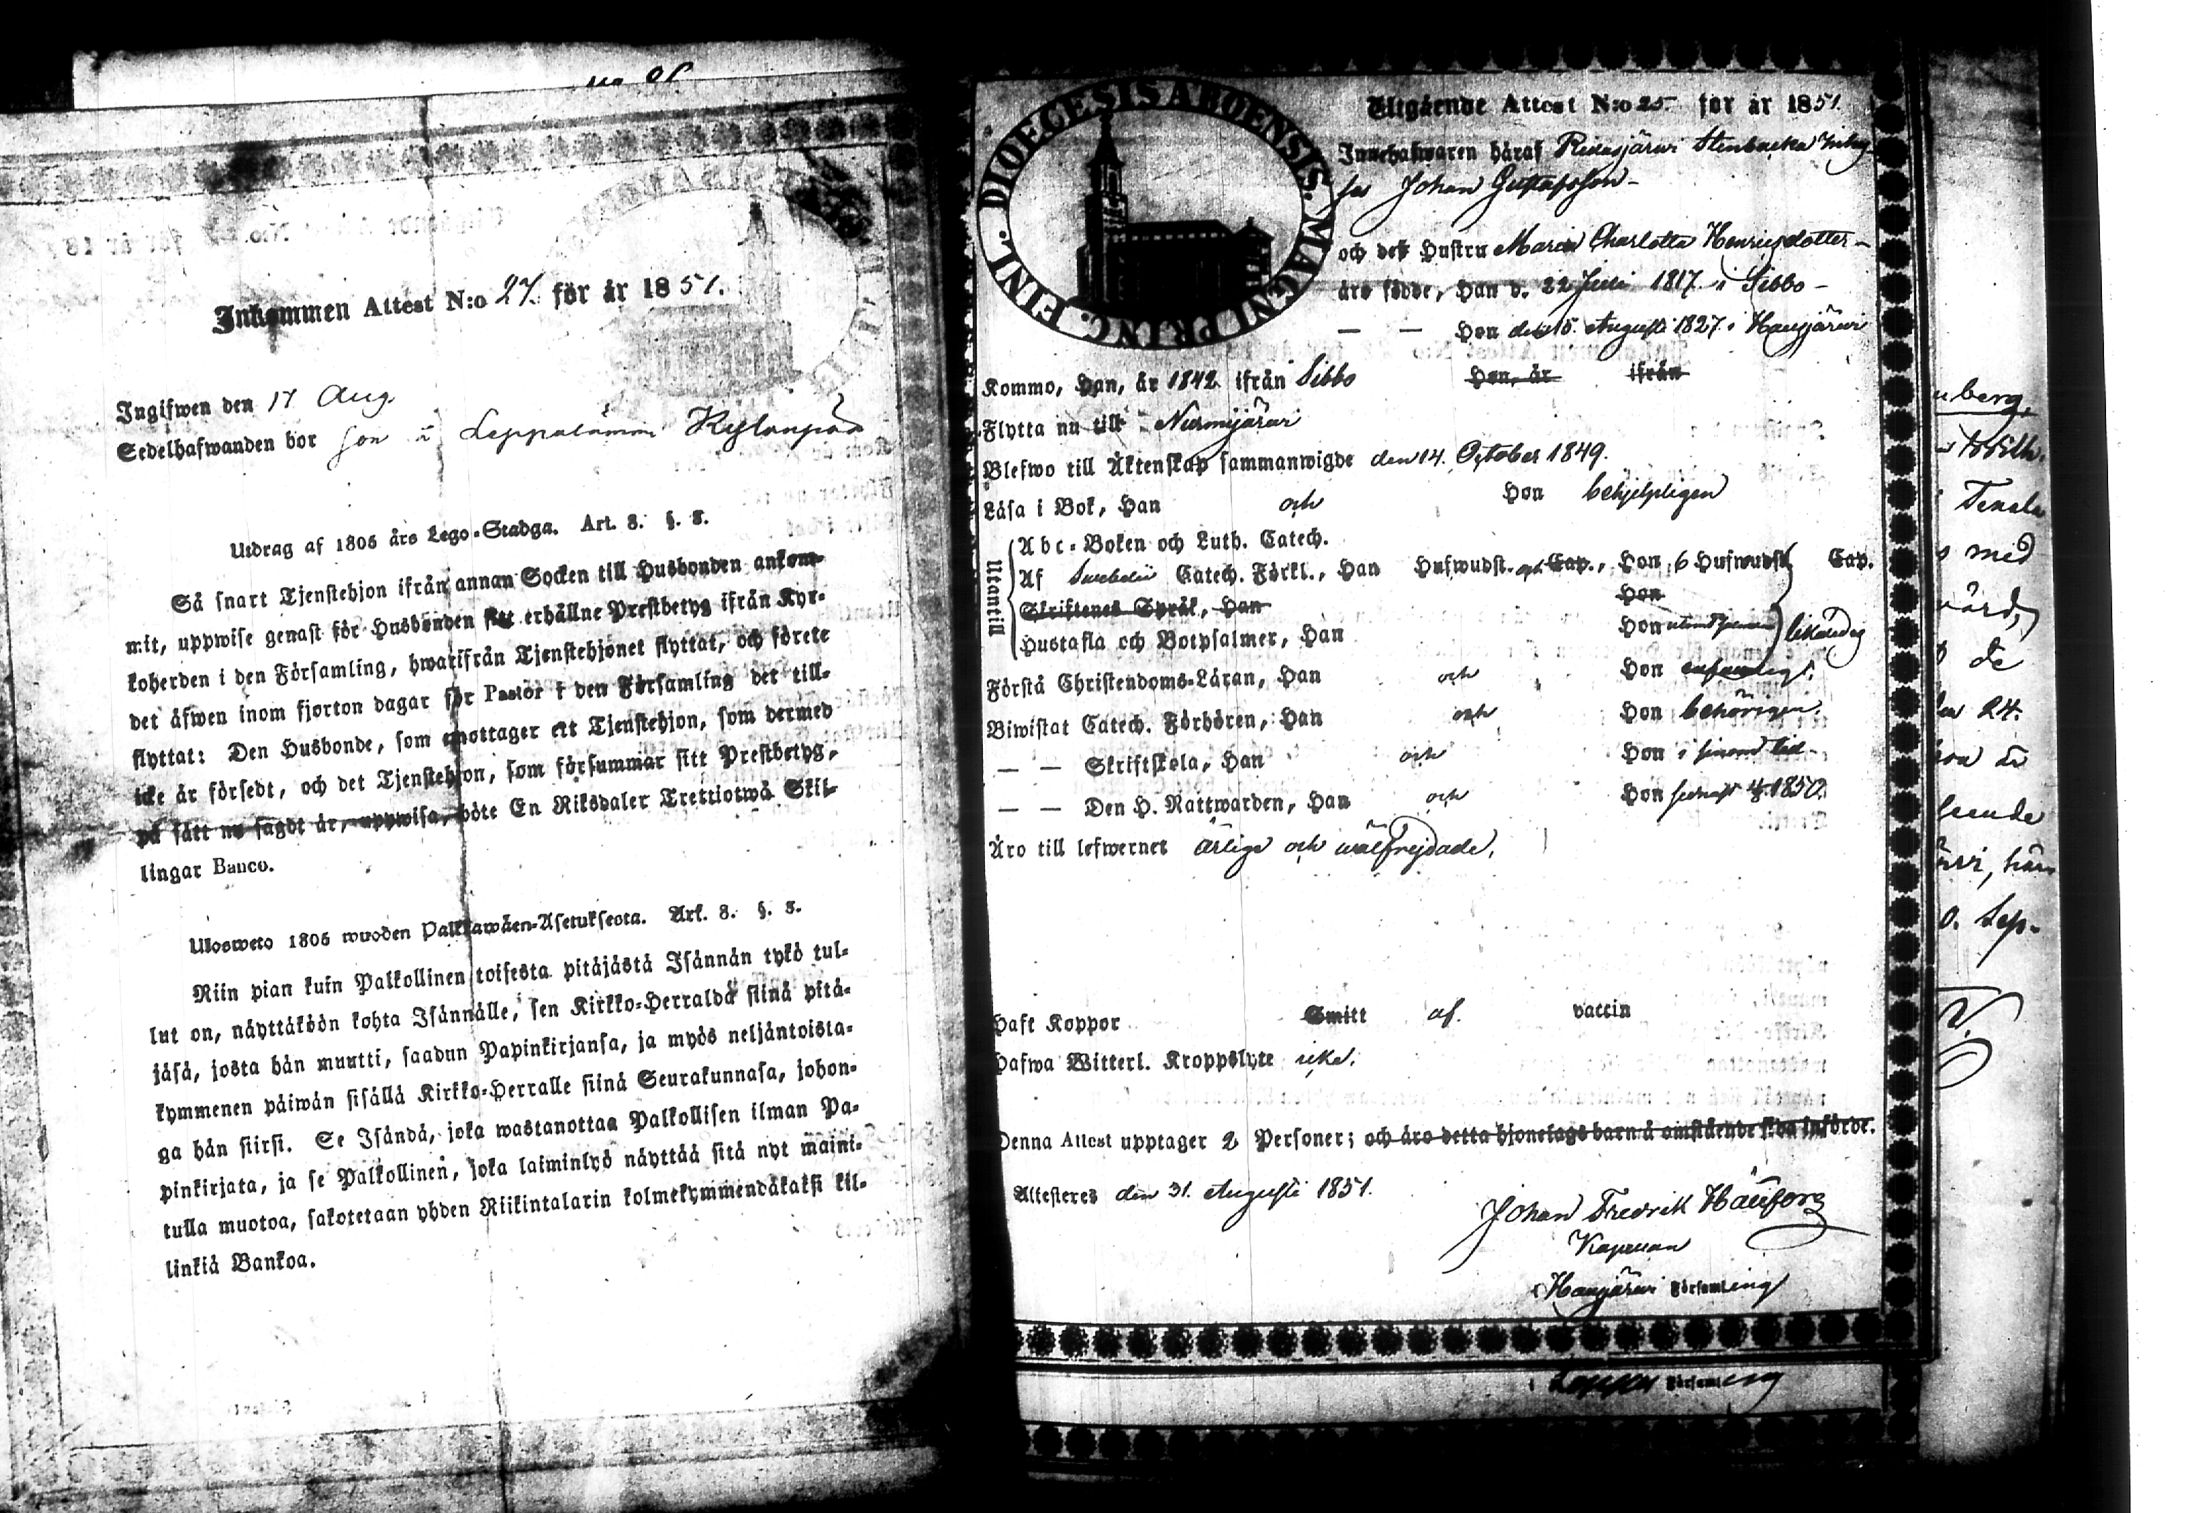 Inkommen Attest N:o 27. för år 1851.
Ingifwen den 17 Aug
Sedelhafwanden bor
Utdrag af 1805 års Lego-Stadga. Art. 8. §. 8.
Så snart Tjenstehjon ifrån annan Socken till Husbonden ankom-
mit, uppwise genast för Husbonden sitt erhållne Prestbetyg ifrån Kyr-
koherden i den Församling, hwarifrån Tjenstehjonet flyttat, och förete
det äfwen inom fjorton dagar för Pastor i den Församling det till-
flyttat: Den Husbonde, som emottager ett Tjenstehjon, som dermed
icke är försedt, och det Tjenstehjon, som försummar sitt Prestbetyg,
på sätt nu sagdt är, uppwisa, böte En Riksdaler Trettiotwå Skil-
lingar Banco.
Ulosweto 1805 wuoden Palkkawäen-Asetuksesta. Art. 8. §. 8.
Niin pian kuin Palkollinen toisesta pitäjästä Isännän tykö tul-
lut on, näyttäköön kohta Isännälle, sen Kirkko-Herralda siinä pitä-
jäsä, josta hän muutti, saadun Papinkirjansa, ja myös neljäntoista-
kymmenen päiwän sisällä Kirkko-Herralle siinä Seurakunnasa, johon-
ga hän siirsi. Se Isändä, joka wastanottaa Palkollisen ilman Pa-
pinkirjata, ja se Palkollinen, joka laiminlyö näyttää sitä nyt maini-
tulla muotoa, sakotetaan yhden Riikintalarin kolmekymmendäkaksi kil-
linkiä Bankoa.
DIOECESIS ABOENSIS. MAGNI PRINC. FINL.
Utgående Attest N:o 25 för år 1851.
Innehafwaren häraf Ridasjärwi Stenbacka
Johan Gustafsson
och dess Hustru Maria Charlotta Henricsdotter
äro födde, Han d. 22 Juli 1817 i Sibbo
— — Hon den 15. Augusti 1827 i Hausjärwi
Kommo, Han, år 1842 ifrån Sibbo Hon, år ifrån
Flytta nu till Nurmijärwi
Blefwo till Äktenskap sammanwigde den 14. October 1849.
Läsa i Bok, Han och Hon behjelpligen
Utantill
Abc-Boken och Luth. Catech.
Af Swebelii Catech. Förkl., Han Hufwudst. och Cap., Hon 6 Hufwudst. Cap.
Skriftenes Språk, Han Hon
Hustafla och Botpsalmer, Han Hon
Förstå Christendoms-Läran, Han och Hon
Biwistat Catech. Förhören, Han och Hon behörigen
— — Skriftskola, Han och Hon i sinom tid
— — Den H. Nattwarden, Han och Hon 1850.
Äro till lefwernet ärlige och wälfrejdade.
Haft Koppor Smitt af vaccin
Hafwa Witterl. Kroppslyte icke.
Denna Attest upptager 2 Personer; och äro detta hjonelags barn å omstående sida införde.
Attesteres den 31. Augusti 1851.
Johan Fredrik
Kapellan
i Hausjärwi Församling
i Församling